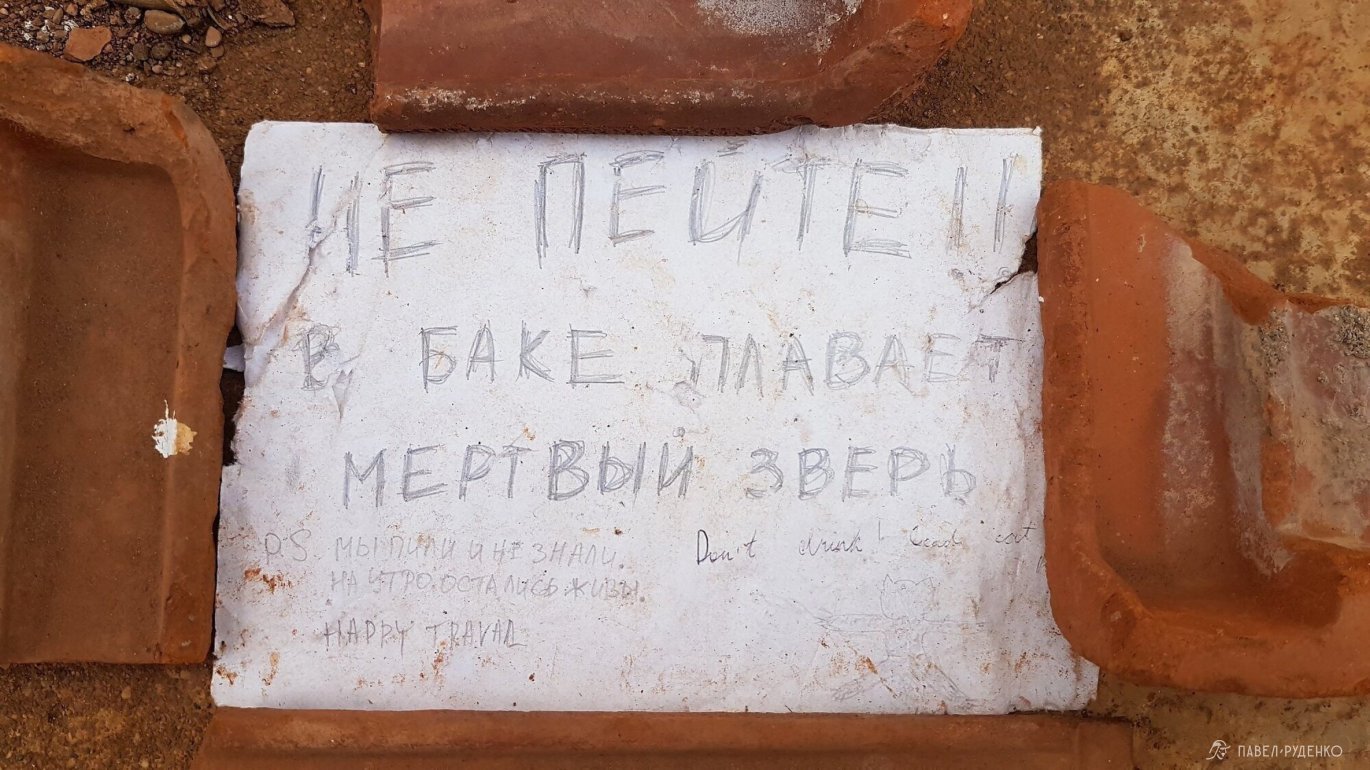 НЕ ПЕЙТЕ!!
В БАКЕ ПЛАВАЕТ
МЕРТВЫЙ ЗВЕРЬ
P.S МЫ ПИЛИ И НЕ ЗНАЛИ.
НА УТРО ОСТАЛИСЬ ЖИВЫ.
HAPPY TRAVAL
Don't drink! Dead cat
ПАВЕЛ РУДЕНКО